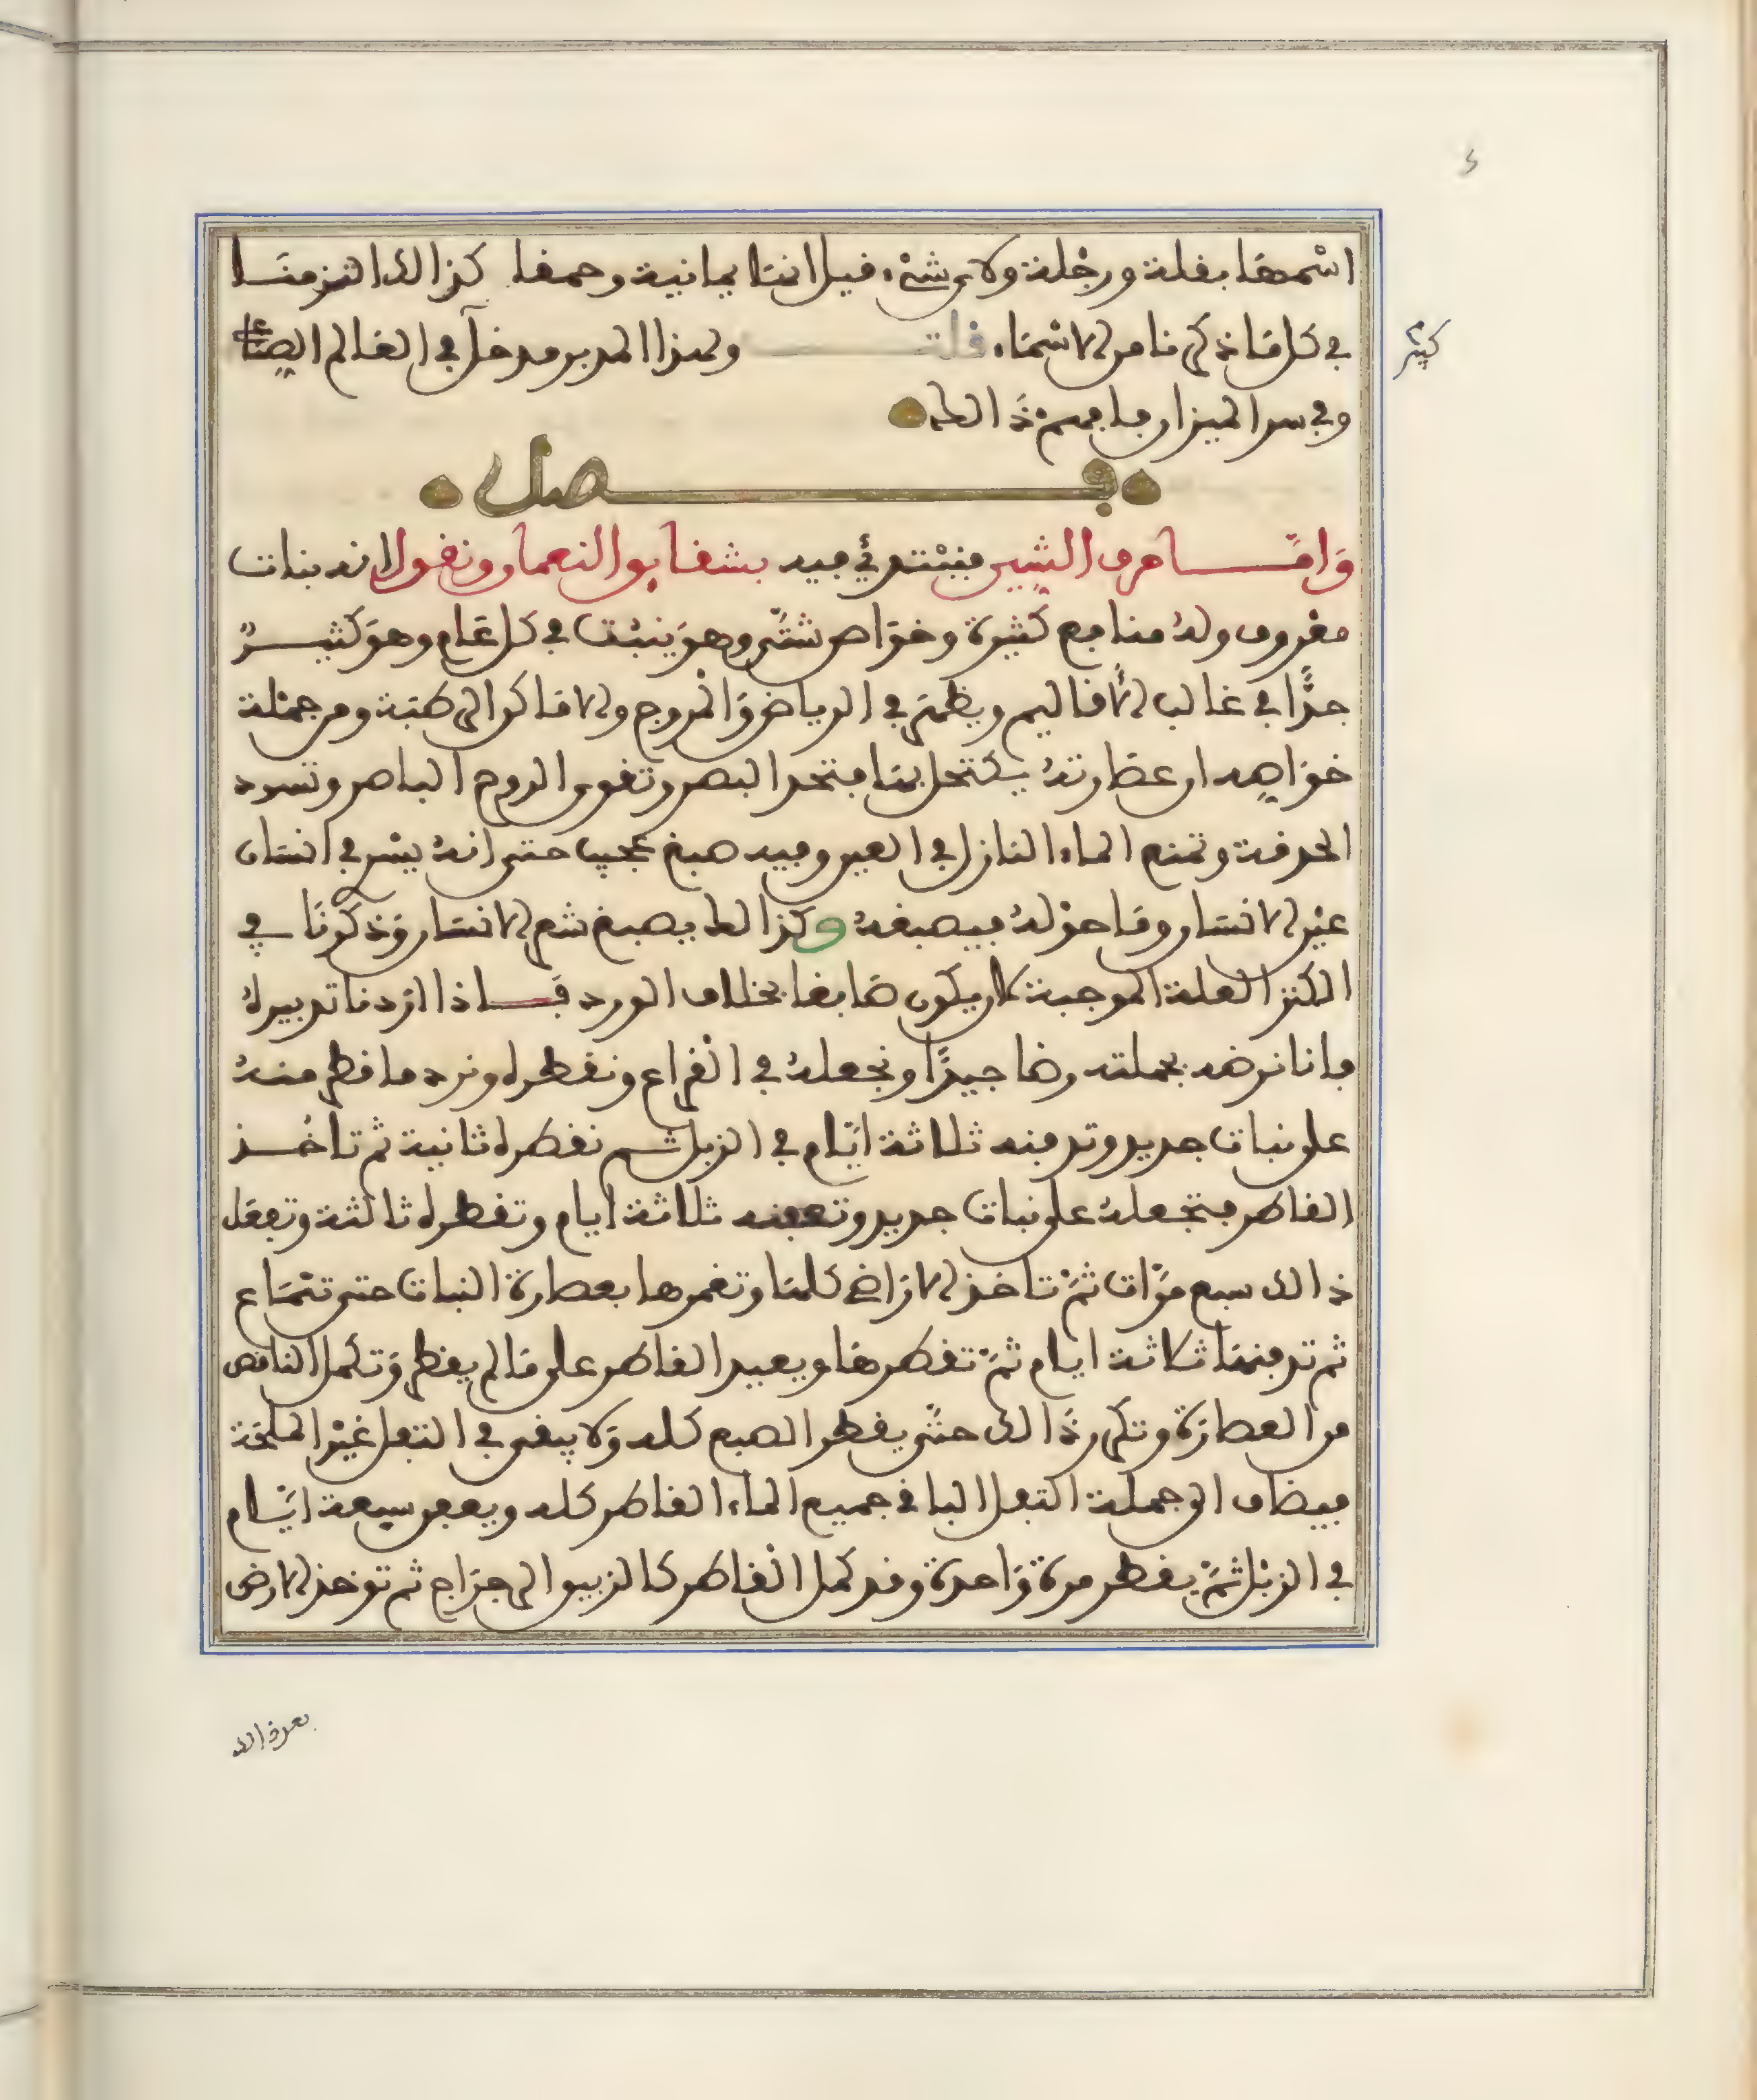 اسْمهَا بفلة ورجْلة ولاى شىْء فيل انها يمانية وحمفا كذالك التزمنَا
في كل مَا ذكرنا من الاسْمَاء فلت ولهذا المدبر مدخل في العَالم الصنَاعى
كبير
وفي سر الميزان فافهم ذَالك
فصل
وَامَّا حرف الشين فنبْتدئ فيه بشفايق النعمان ونفول انه نبات
معْروف ولهُ منافع كثيرة وخوَاص شتَّى وهوَ ينبُت في كل عَام وهوَ كثيرٌ
جدًّا في غالب الأفاليم ويظهر في الرياض وَالمْروج والامَاكن الرطبَة ومن جمْلة
خوَاصه ان عصَارتهُ يكتحل بهَا فتحد البصر وتفوى الروح الباصر وتسود
الحدفة وتمنع الماء النازل في العين وفيه صبغ عجيب حتى انهُ يسْرى في انسَان
عيْن الانسَان ومَا حوْلهُ فيصبغهُ وكذالك يصبغ شعر الانسَان وَذكرْنَا في
الكنز العلة الموجبة لان يكون صَابغا بخلاف الورد فَاذا ارَدنا تدبيرهُ
فانا نرضه بجملته رضا جيدًا ونجعلهُ في الْفرع ونفطره ونرد ما فطر منهُ
على نبات جديد وتدفنه ثلاثة ايَّام في الزبل ثم نفطره ثانية ثم تاخُذ
الفاطر فتجْعلهُ على نبات جديد وتعفنه ثلاثة ايام وتفطره ثالثة وتفعَل
ذالك سبع مرَّات ثمَّ تاخذ الارَاضى كلهَا وتغمرها بعصارة النبات حتى تنْمَاع
ثم تدفنهَا ثلاثة ايام ثمَّ تفطرهَا ويعيد الفاطر على مَا لم يفطر وَتكمل النافص
من العصارَة وتكرر ذَالك حتَّى يفطر الصبغ كله وَلا يبفى في التفل غيْر الملحَة
فيضاف الى جملة التفل البافى جميع الماء الفاطر كله ويعفن سبعة ايَّام
في الزبْل ثمَّ يفطر مرة وَاحدة وفد كمل الفاطر كالزيبق الرجرَاج ثم توخذ الارض
بعرف الله